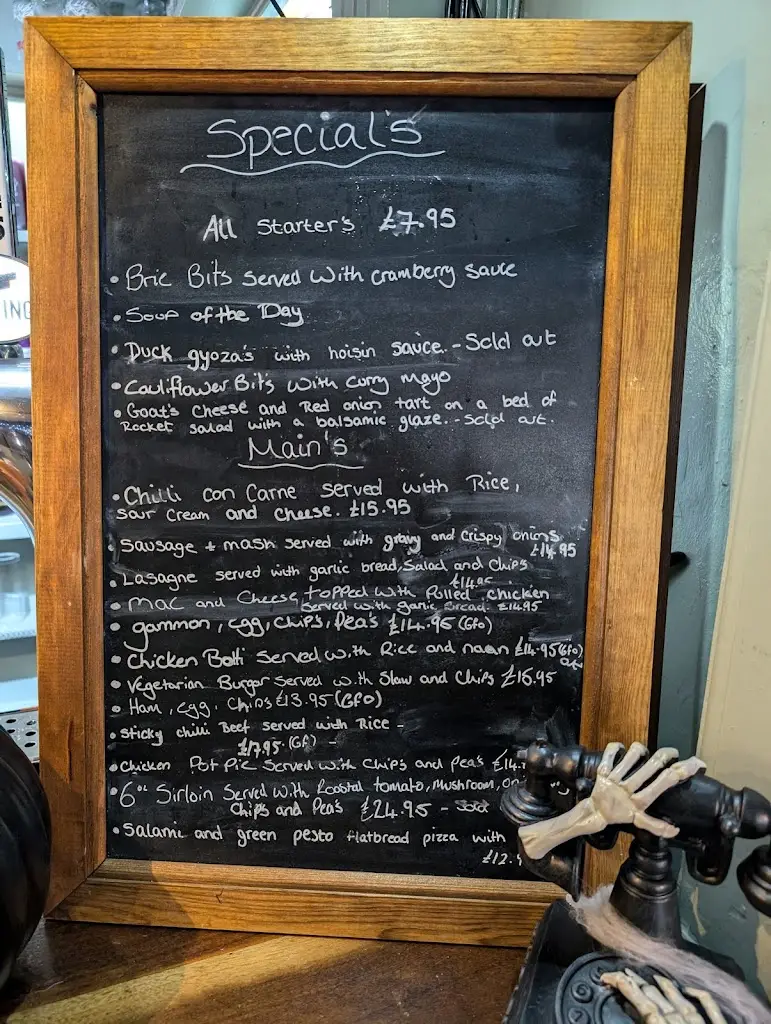 Special's
All Starter's £7.95
• Brie Bits Served With cramberry sauce
• Soup of the Day
• Duck gyoza's with hoisin sauce. - Sold out
• Cauliflower Bits with curry mayo
• Goat's Cheese and Red onion tart on a bed of
Rocket salad with a balsamic glaze. - Sold out.
Main's
• Chilli con Carne served with Rice,
Sour Cream and cheese. £15.95
• Sausage + mash served with gravy and crispy onins
£14.95
• Lasagne served with garlic bread, Salad and Chips
£14.95
• Mac and Cheese topped with Pulled chicken
Served with Garlic Bread. £14.95
• gammon, egg, Chip's, Pea's £14.95 (GFO)
• Chicken Balti Served with Rice and naan £14.95 (GFO)
• Vegetarian Burger Served with Slaw and Chips £15.95
• Ham, egg, Chips £13.95 (GFO)
• Sticky chilli Beef served with Rice -
£17.95 (GF) -
• Chicken Pot Pie Served with Chip's and Pea's £14.
• 6oz Sirloin Served With Roastd tomato, mushroom,
Chips and Pea's £24.95 - Sold
• Salami and green pesto flatbread pizza with
£12.
ING